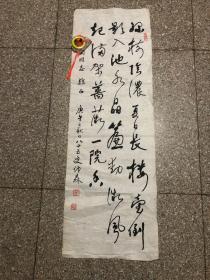 綠樹陰濃夏日長樓臺倒
影入池水晶簾動微風
起滿架薔薇一院香
同志
庚午之秋八十五